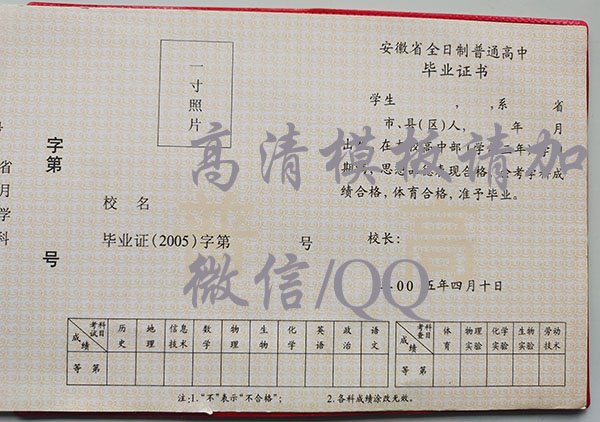 安徽省全日制普通高中
毕业证书
一寸照片
学生 , ,系 省
市、县(区)人, 年 月
出 在本校高中部(学制三年)学
期满,思想品德表现合格,会考学科成
绩合格,体育合格,准予毕业。
校 名
毕业证(2005)字第 号
校长:
二00五年四月十日
字第 号
省
月
学
科
高清模板请加
微信/QQ
考试科目 历史 地理 信息技术 数学 物理 生物 化学 英语 政治 语文
成绩
等 第
考查科目 体育 物理实验 化学实验 生物实验 劳动技术
成绩
等 第
注:1."不"表示"不合格"; 2.各科成绩涂改无效。